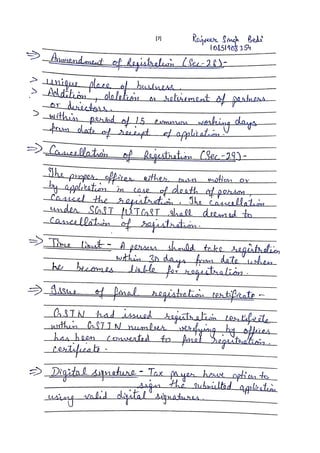 (7) Rajveer Singh Bedi
10151903154
⇒ Amendment of Registration (Sec-28)-
> unique place of business.
> Addition, deletion or retirement of partners
or directors.
> within period of 15 common working days
from date of receipt of application.
⇒ Cancellation of Registration (Sec-29)-
The proper officer either own motion or
by application in case of death of person,
cancel the registration. The cancellation
under SGST / UTGST shall deemed to
cancellation of registration.
⇒ Time limit - A person should take registration
within 30 days from date when
he becomes liable for registration.
⇒ Issue of final registration certificate -
GSTN had issued registration certificate
within GSTIN number verifying by officer
has been converted to final registration.
certificate.
⇒ Digital signature - Tax payer have option to
sign the submitted application
using valid digital signatures.